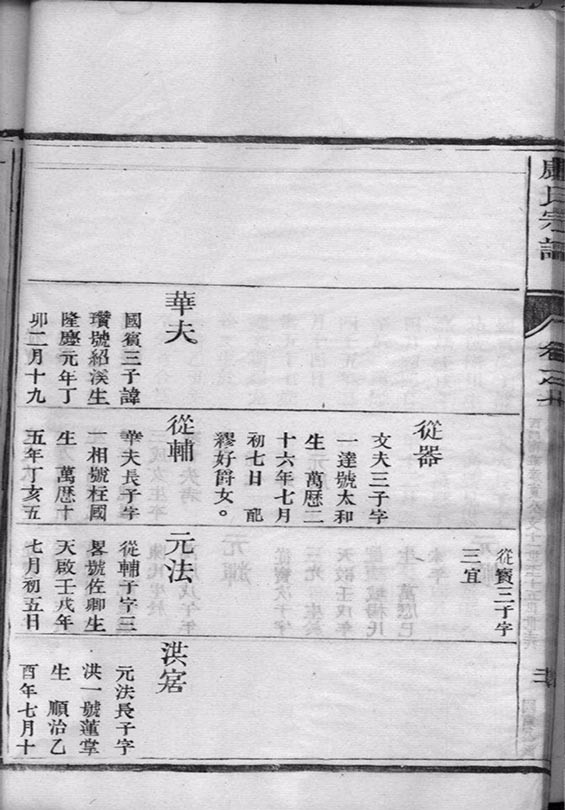 氏宗譜
卷之廿
從賓三子字
三宜
從器
文夫三子字
一達號太和
生 萬厯二
十六年七月
初七日 配
繆好爵女。
華夫
國賓三子諱
瓚號紹溪生
隆慶元年丁
卯二月十九
從輔
華夫長子字
一相號柱國
生 萬厯十
五年丁亥五
元法
從輔子字三
畧號佐卿生
天啟壬戌年
七月初五日
洪
元法長子字
洪一號蓮掌
生 順治乙
酉年七月十